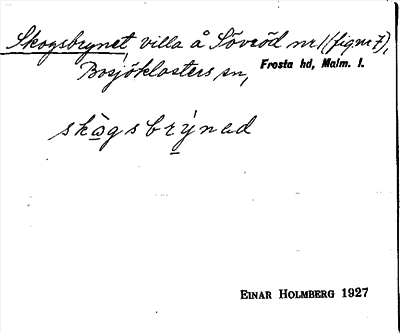 Skogsbrynet, villa å Sövröd nr 1 (fig. nr 7),
Bosjöklosters sn, Frosta hd, Malm. l.
skògsbrýnad
EINAR HOLMBERG 1927